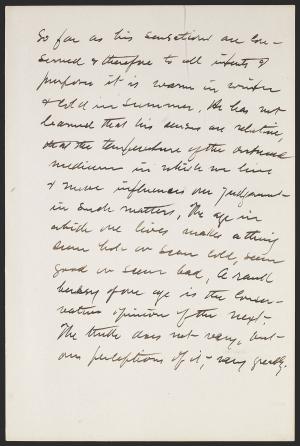 So far as his sensations are con-
cerned & therefore to all intents &
purposes it is warm in winter
& cold in summer. He has not
learned that his senses are relative,
that the temperature of the
medium in which we live
& move influences our judgment
in such matters. The age in
which one lives makes a thing
seem hot or seem cold, seem
good or seem bad. A rank
heresy of one age is the conser-
vative opinion of the next.
The truth does not vary, but
our perceptions of it, vary greatly.